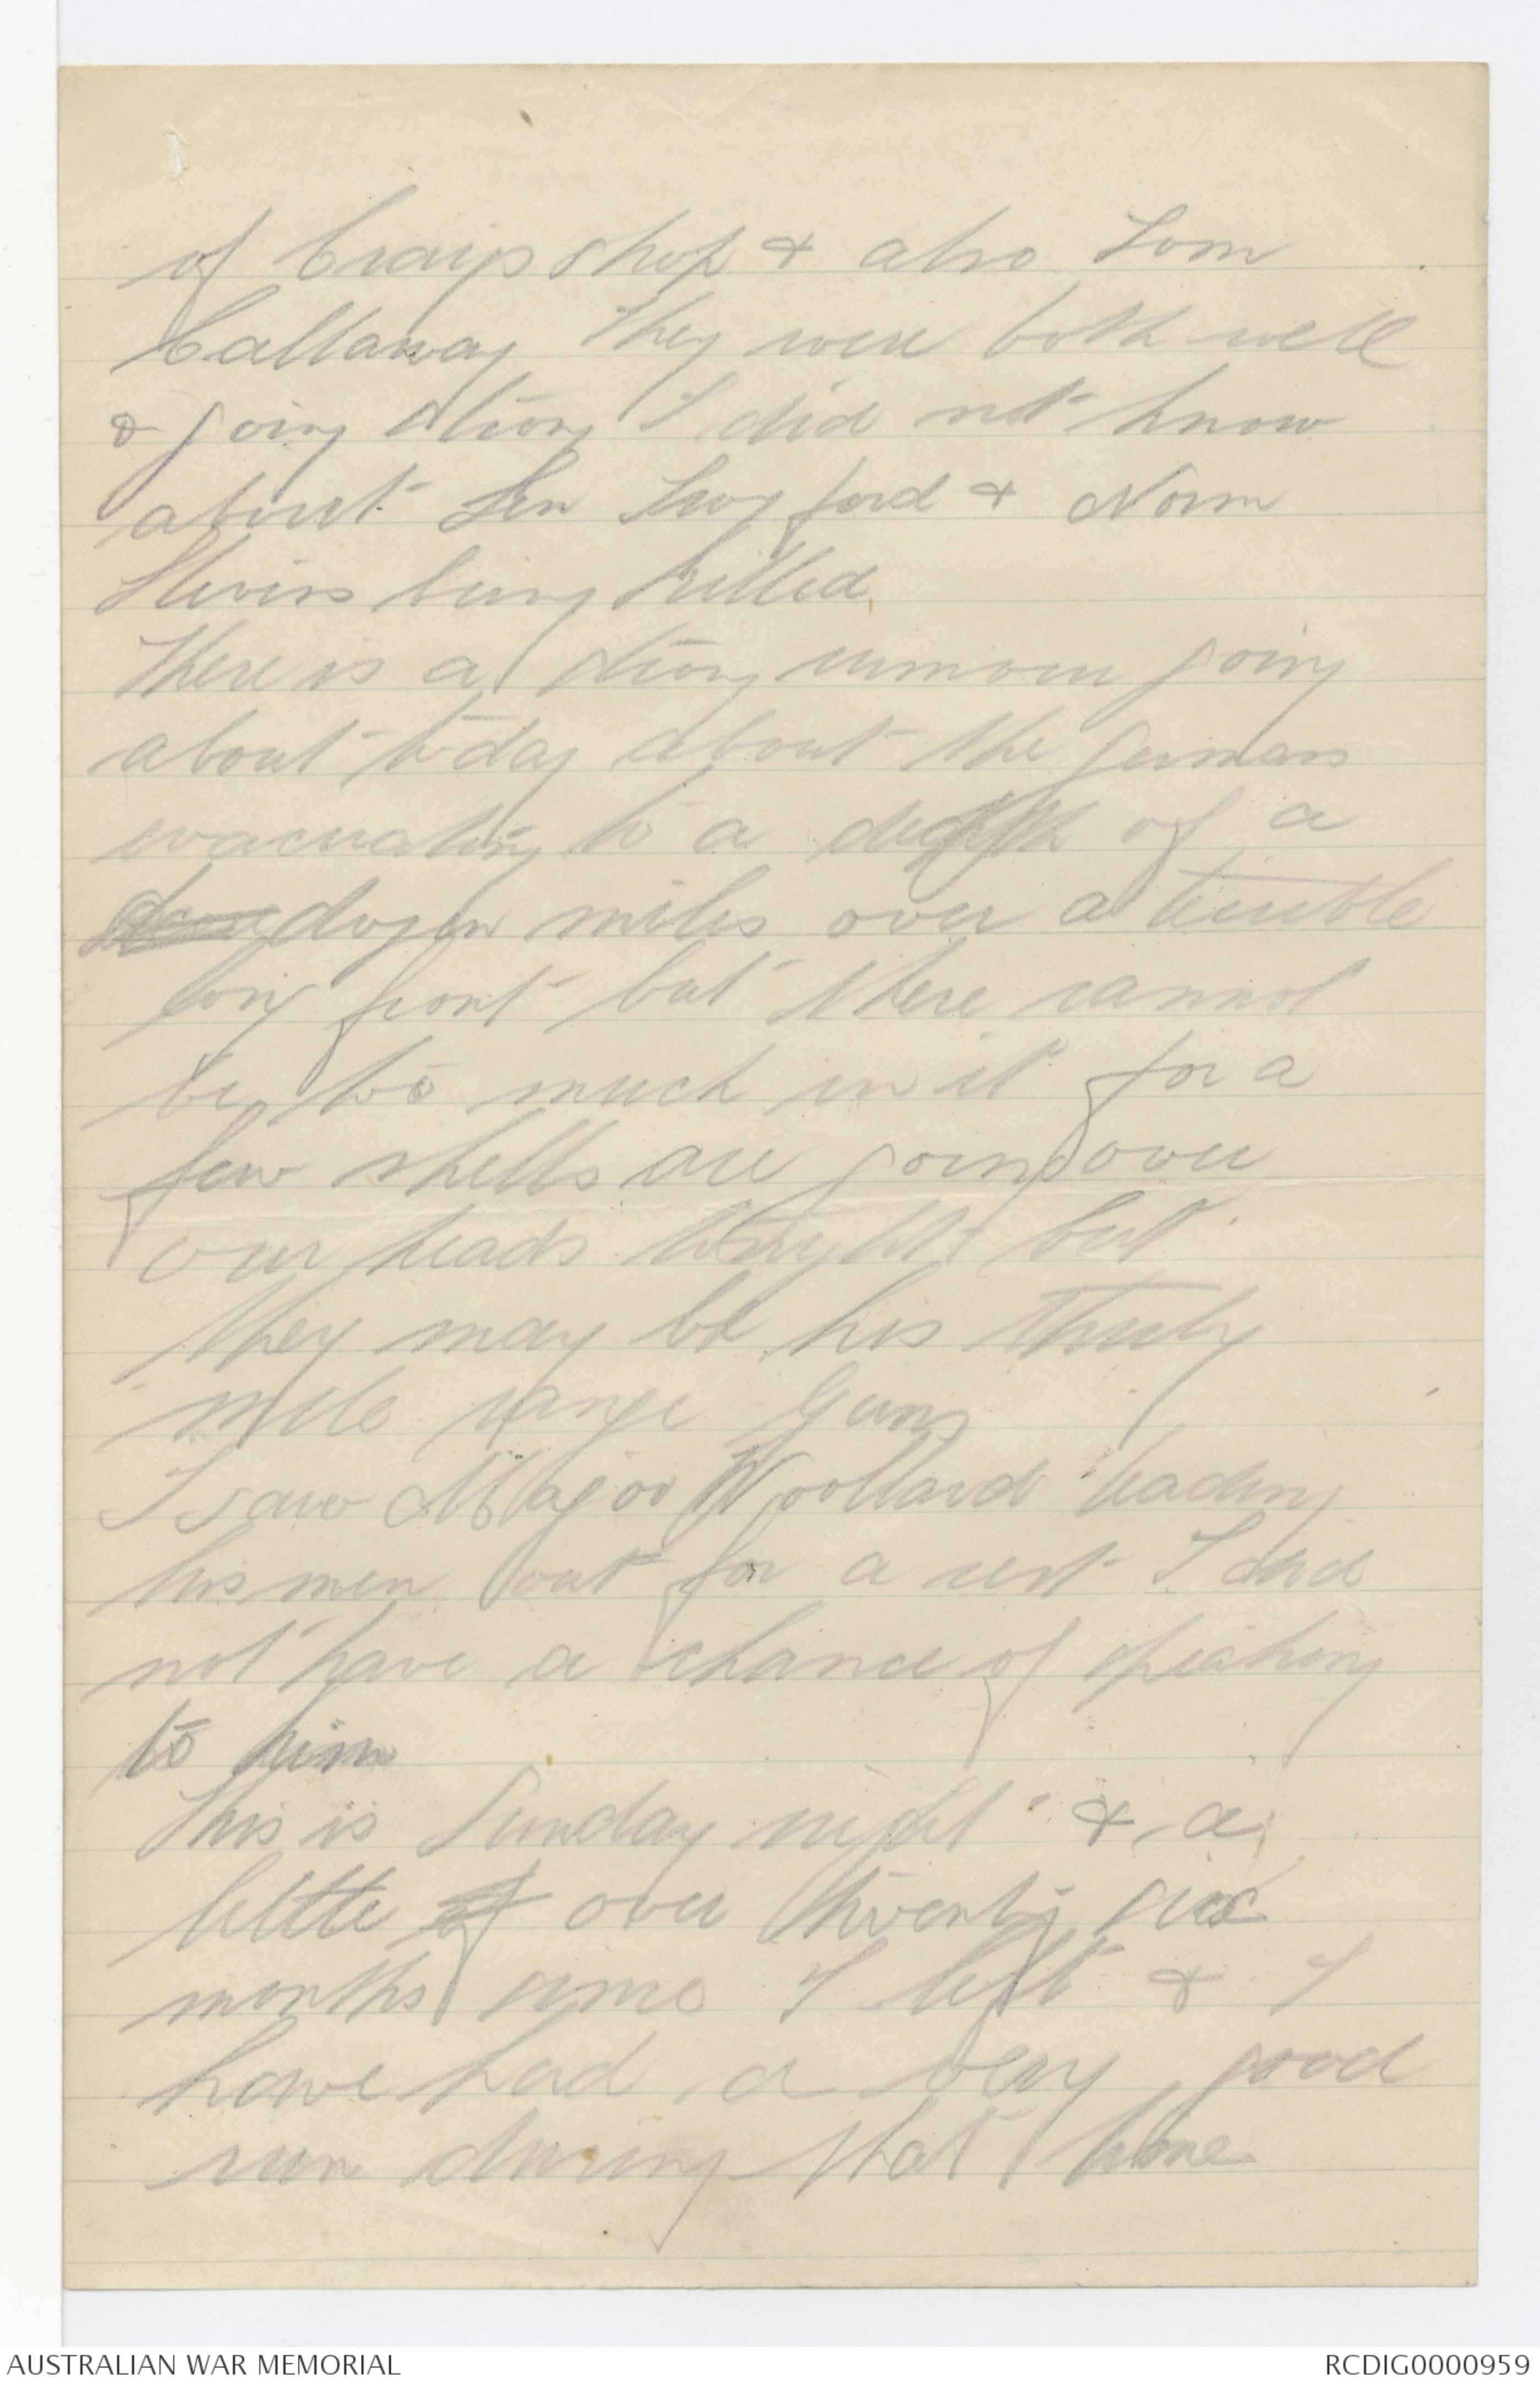 of Craigs shop & also Tom
Callaway They were both well
& going strong I did not know
about Len &
being killed
There is a strong rumour going
about today about the germans
evacuating to a depth of a
dozen miles over a terrible
long front but there cannot
be to much in it for a
few shells are going over
our heads tonight but
they may be his thirty
mile range guns
I saw Major Woollard leading
his men out for a rest I did
not have a chance of speaking
to him
This is Sunday night & a
little over twenty six
months since I left & I
have had a very good
run during that time
AUSTRALIAN WAR MEMORIAL
RCDIG0000959